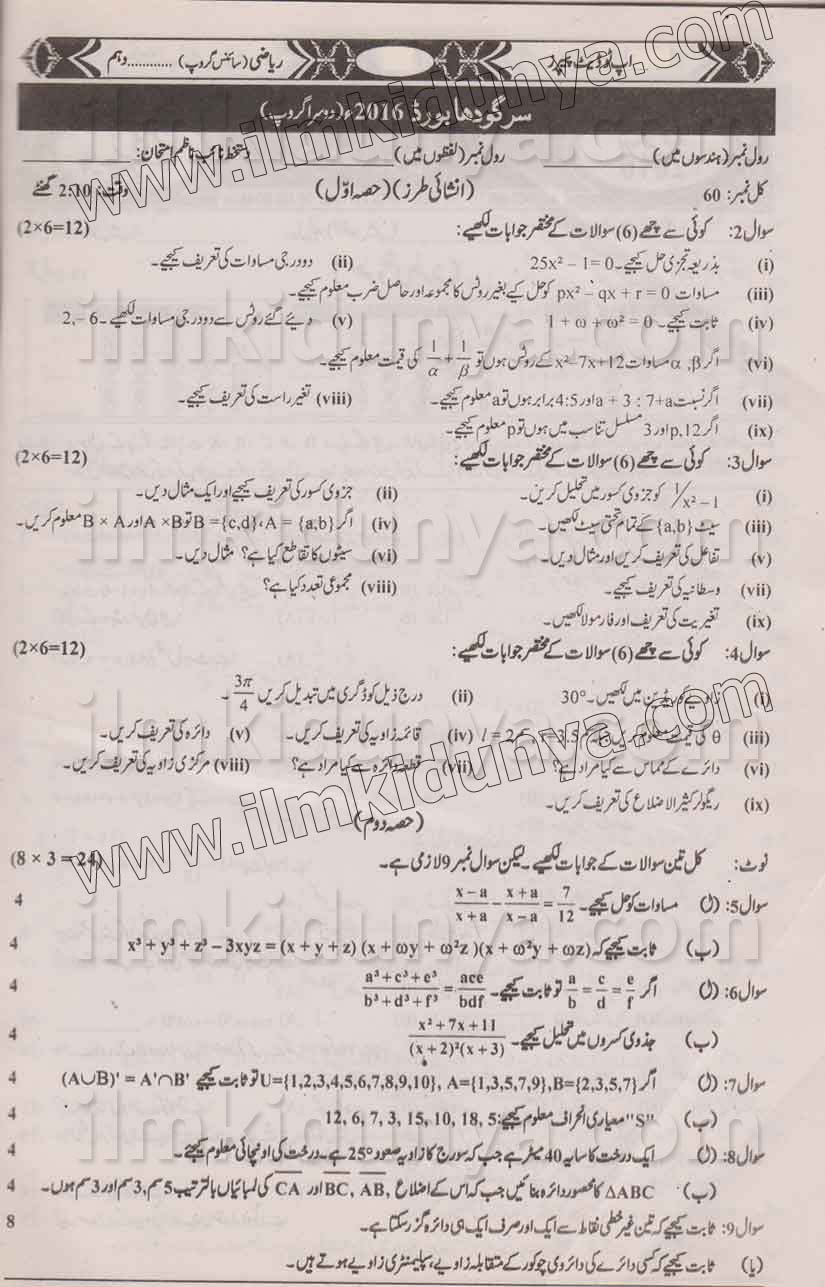 اپ ٹوڈیٹ پیپرز ریاضی (سائنس گروپ) ............ دہم
سرگودھا بورڈ 2016ء (دوسرا گروپ)
رول نمبر (ہندسوں میں) ________ رول نمبر (لفظوں میں) ________ دستخط نائب ناظم امتحان: ________
کل نمبر: 60 (انشائی طرز) (حصہ اوّل) وقت: 2:10 گھنٹے
سوال2: کوئی سے چھے (6) سوالات کے مختصر جوابات لکھیے: (2×6=12)
(i) بذریعہ تجزی حل کیجیے۔ 25x² – 1= 0 (ii) دو درجی مساوات کی تعریف کیجیے۔
(iii) مساوات px² – qx + r = 0 کو حل کیے بغیر روٹس کا مجموعہ اور حاصل ضرب معلوم کیجیے۔
(iv) ثابت کیجیے۔ 1 + ω + ω² = 0 (v) دیئے گئے روٹس سے دو درجی مساوات لکھیے۔ 2,– 6
(vi) اگر α, β مساوات x²–7x+12 کے روٹس ہوں تو 1/α + 1/β کی قیمت معلوم کیجیے۔
(vii) اگر نسبت a + 3 : 7+a اور 4:5 برابر ہوں تو a معلوم کیجیے۔ (viii) تغیر راست کی تعریف کیجیے۔
(ix) اگر p, 12 اور 3 مسلسل تناسب میں ہوں تو p معلوم کیجیے۔
سوال3: کوئی سے چھے (6) سوالات کے مختصر جوابات لکھیے: (2×6=12)
(i) 1/x² –1 کو جزوی کسور میں تحلیل کریں۔ (ii) جزوی کسور کی تعریف کیجیے اور ایک مثال دیں۔
(iii) سیٹ {a,b} کے تمام تحتی سیٹ لکھیں۔ (iv) اگر A = {a,b}، B ={c,d} تو A ×B اور B × A معلوم کریں۔
(v) تفاعل کی تعریف کریں اور مثال دیں۔ (vi) سیٹوں کا تقاطع کیا ہے؟ مثال دیں۔
(vii) وسطانیہ کی تعریف کیجیے۔ (viii) مجموعی تعدد کیا ہے؟
(ix) تغیریت کی تعریف اور فارمولا لکھیں۔
سوال4: کوئی سے چھے (6) سوالات کے مختصر جوابات لکھیے: (2×6=12)
(i) زاویے کو ریڈین میں لکھیں۔ 30° (ii) درج ذیل کو ڈگری میں تبدیل کریں 3π/4 ۔
(iii) θ کی قیمت معلوم کریں l = 2 r = 3.5 (iv) قائمہ زاویہ کی تعریف کریں۔ (v) دائرہ کی تعریف کریں۔
(vi) دائرے کے مماس سے کیا مراد ہے؟ (vii) قطعہ دائرہ سے کیا مراد ہے؟ (viii) مرکزی زاویہ کی تعریف کریں۔
(ix) ریگولر کثیر الاضلاع کی تعریف کریں۔
(حصہ دوم)
نوٹ: کل تین سوالات کے جوابات لکھیے۔ لیکن سوال نمبر 9 لازمی ہے۔ (8 × 3 = 24)
سوال5: (ل) مساوات کو حل کیجیے۔ x–a/x+a – x+a/x–a = 7/12 4
(ب) ثابت کیجیے کہ x³ + y³ + z³ – 3xyz = (x + y + z) (x + ωy + ω²z )(x + ω²y + ωz) 4
سوال6: (ل) اگر a/b = c/d = e/f تو ثابت کیجیے۔ a³ + c³ + e³/b³ + d³ + f³ = ace/bdf 4
(ب) جذوی کسروں میں تحلیل کیجیے۔ x² + 7x + 11/(x + 2)²(x + 3) 4
سوال7: (ل) اگر U={1,2,3,4,5,6,7,8,9,10}, A={1,3,5,7,9},B={2,3,5,7} تو ثابت کیجیے (A∪B)' = A'∩B' 4
(ب) "S" معیاری انحراف معلوم کیجیے: 12, 6, 7, 3, 15, 10, 18, 5 4
سوال8: (ل) ایک درخت کا سایہ 40 میٹر ہے جب کہ سورج کا زاویہ صعود 25° ہے۔ درخت کی اونچائی معلوم کیجیئے۔ 4
(ب) ΔABC کا محصور دائرہ بنائیں جب کہ اس کے اضلاع BC, AB, اور CA کی لمبائیاں بالترتیب 5 سم, 3 سم اور 3 سم ہوں۔ 4
سوال9: ثابت کیجیے کہ تین غیر خطی نقاط سے ایک اور صرف ایک ہی دائرہ گزر سکتا ہے۔ 8
(یا) ثابت کیجیے کہ کسی دائرے کی دائروی چوکور کے متقابلہ زاویے، سپلیمنٹری زاویے ہوتے ہیں۔
www.ilmkidunya.com
www.ilmkidunya.com
ilmkidunya.com
ilmkidunya.com
ilmkidunya.com
ilmkidunya.com
ilmkidunya.com
ilmkidunya.com